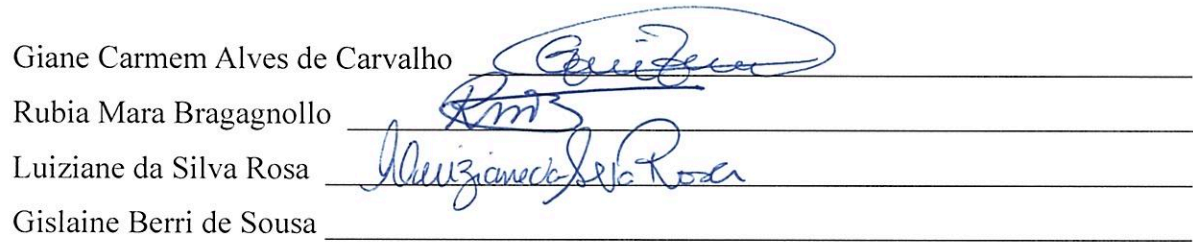 Giane Carmem Alves de Carvalho
Rubia Mara Bragagnollo RMB
Luiziane da Silva Rosa Luiziane da Silva Rosa
Gislaine Berri de Sousa